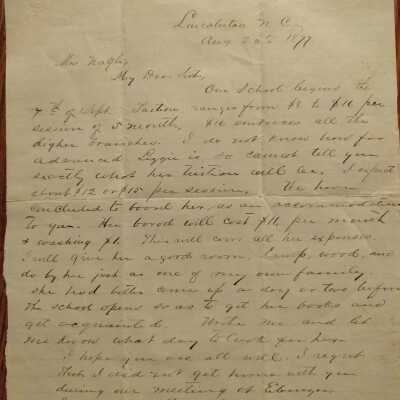 Lincolnton N. C.
Aug 1877
My Dear Sir,
Our School begins the
7th of Sept. Tuition ranges from $8 to $16 per
session of 5 months, $16 embraces all the
higher branches. I do not know how far
advanced is so cannot tell you
exactly what her tuition will be. I expect
about $12 or $15 per session. We have
concluded to board her, as an accommodation
to you. Her board will cost per month
& washing $1. This will cover all her expenses
I will give her a good room, Lamp, wood, and
do by her just as one of my own family
she had better come up a day or two before
the school opens so as to get her books and
get acquainted. Write me and let
me know what day to look for her.
I hope you are all well. I regret
that I did not get home with you
during our meeting at Ebenezer